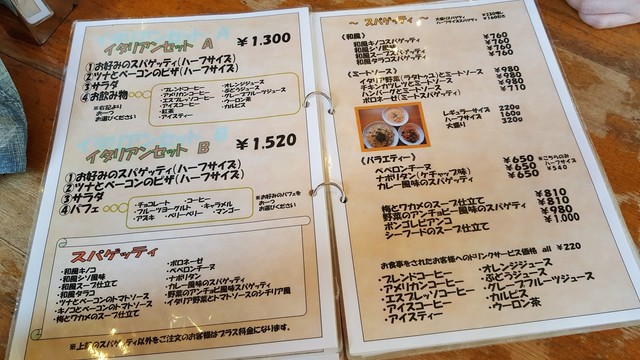 イタリアンセット A ¥1.300
①お好みのスパゲッティ(ハーフサイズ)
②ツナとベーコンのピザ(ハーフサイズ)
③サラダ
④お飲み物
※右記より
お一つ
お選びください
・ブレンドコーヒー
・アメリカンコーヒー
・エスプレッソコーヒー
・アイスコーヒー
・紅茶
・アイスティー
・オレンジジュース
・ぶどうジュース
・グレープフルーツジュース
・ウーロン茶
・カルピス
イタリアンセット B ¥1.520
①お好みのスパゲッティ(ハーフサイズ)
②ツナとベーコンのピザ(ハーフサイズ)
③サラダ
④パフェ
・チョコレート ・コーヒー
・フルーツヨーグルト ・キャラメル
・アズキ ・ベリーベリー ・マンゴー
※お好みのパフェを
お一つ
お選びください
スパゲッティ
・和風キノコ
・和風シソ風味
・和風スープ仕立て
・和風タラコ
・ツナとベーコンのトマトソース
・キノコとベーコンのトマトソース
・梅とワカメのスープ仕立て
・ボロネーゼ
・ペペロンチーヌ
・ナポリタン
・カレー風味のスパゲッティ
・野菜のアンチョビ風味のスパゲッティ
・イタリア野菜とトマトソースのシチリア風
※上記のスパゲッティ以外をご注文のお客様はプラス料金になります。
~ スパゲッティ ~
《和風》
和風キノコスパゲッティ ¥760
和風シソスパゲッティ ¥760
和風スープスパゲッティ ¥760
和風タラコスパゲッティ
《ミートソース》
イタリア野菜(ラタトゥイユ)とミートソース ¥980
チキンカツレツとミートソース ¥980
ハンバーグとミートソース ¥980
ボロネーゼ(ミートスパゲティ) ¥710
レギュラーサイズ 220g
ハーフサイズ 160g
大盛り 320g
《バラエティー》
ペペロンチーヌ ¥650
ナポリタン(ケチャップ味) ¥650
カレー風味のスパゲッティ ¥650
※こちらのみ
ハーフサイズ
¥540
梅とワカメのスープ仕立て ¥810
野菜のアンチョビー風味のスパゲティ ¥810
ボンゴレビアンコ ¥980
シーフードのスープ仕立て ¥1,000
お食事をされたお客様へのドリンクサービス価格 all ¥220
・ブレンドコーヒー
・アメリカンコーヒー
・エスプレッソコーヒー
・アイスコーヒー
・アイスティー
・オレンジジュース
・ぶどうジュース
・グレープフルーツジュース
・カルピス
・ウーロン茶